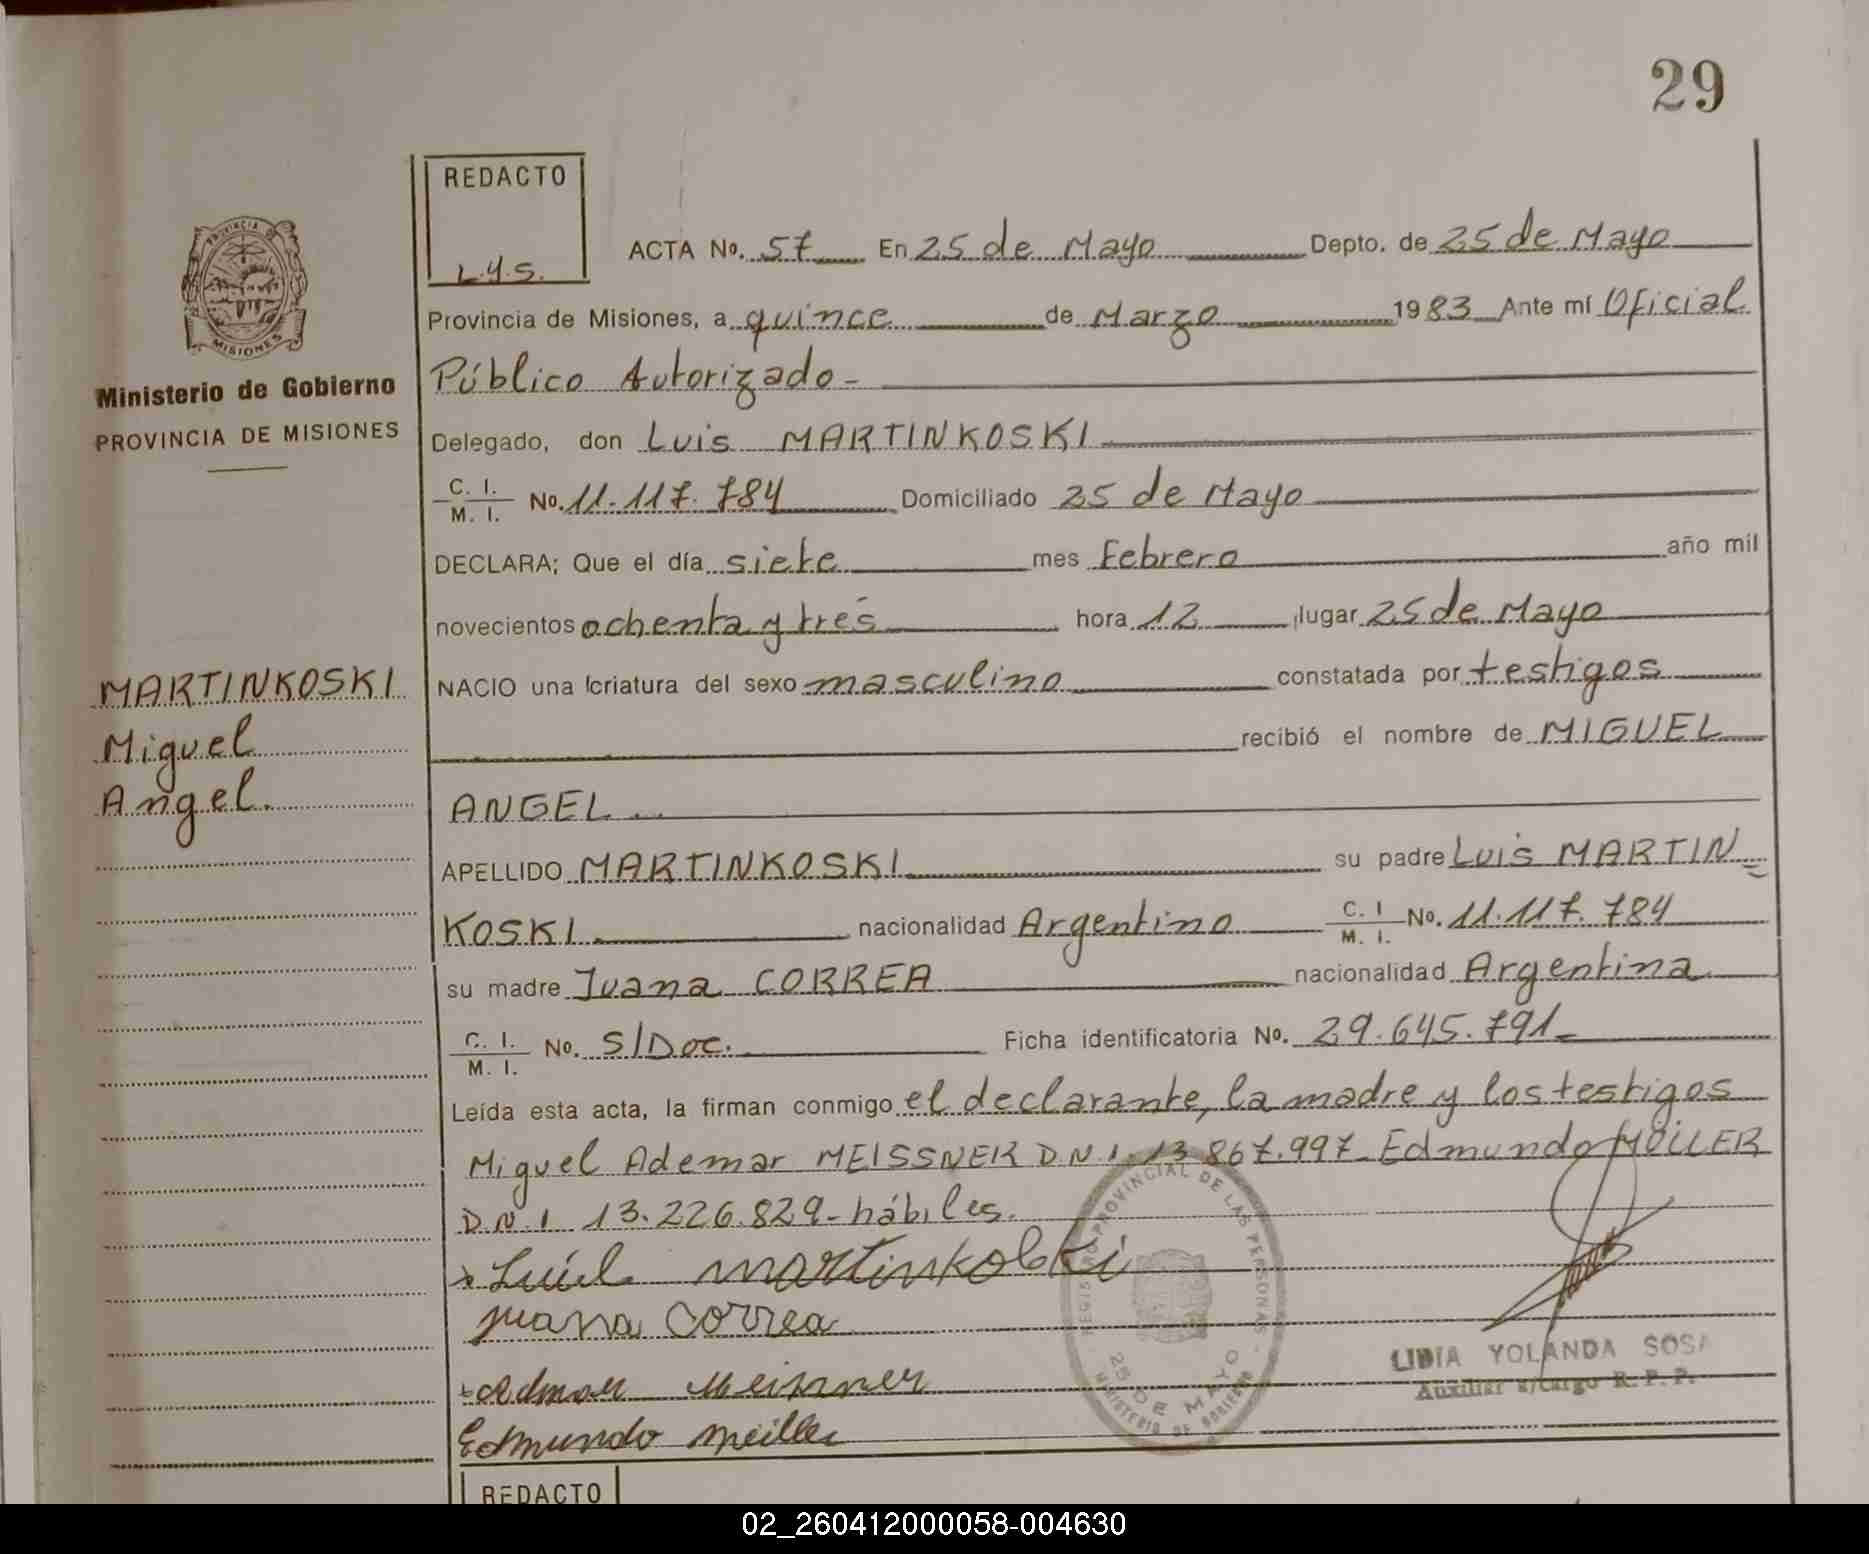 29
REDACTO
L.Y.S.
ACTA No. 57 En 25 de Mayo Depto. de 25 de Mayo
Provincia de Misiones, a quince de Marzo 1983 Ante mí Oficial
Público Autorizado -
Delegado, don Luis MARTINKOSKI
C. I. M. I. No. 11.117.784 Domiciliado 25 de Mayo
DECLARA; Que el día siete mes Febrero año mil
novecientos ochenta y tres hora 12 lugar 25 de Mayo
NACIO una criatura del sexo masculino constatada por testigos
recibió el nombre de MIGUEL
ANGEL
APELLIDO MARTINKOSKI su padre Luis MARTIN=
KOSKI nacionalidad Argentino C. I M. I. No. 11.117.784
su madre Juana CORREA nacionalidad Argentina
C. I. M. I. No. S/Doc. Ficha identificatoria No. 29.645.791-
Leída esta acta, la firman conmigo el declarante, la madre y los testigos
Miguel Ademar MEISSNER D.N.I. 13.867.997- Edmundo MÖLLER
D.N.I 13.226.829- hábiles.
Luis martinkoski
Juana Correa
Ademar Meissner
Edmundo
LIDIA YOLANDA SOSA
Auxiliar a/cargo R. P. P.
REGISTRO PROVINCIAL DE LAS PERSONAS
25 DE MAYO
MINISTERIO DE GOBIERNO
PROVINCIA DE
MISIONES
Ministerio de Gobierno
PROVINCIA DE MISIONES
MARTINKOSKI
Miguel
Angel.
REDACTO
02_260412000058-004630